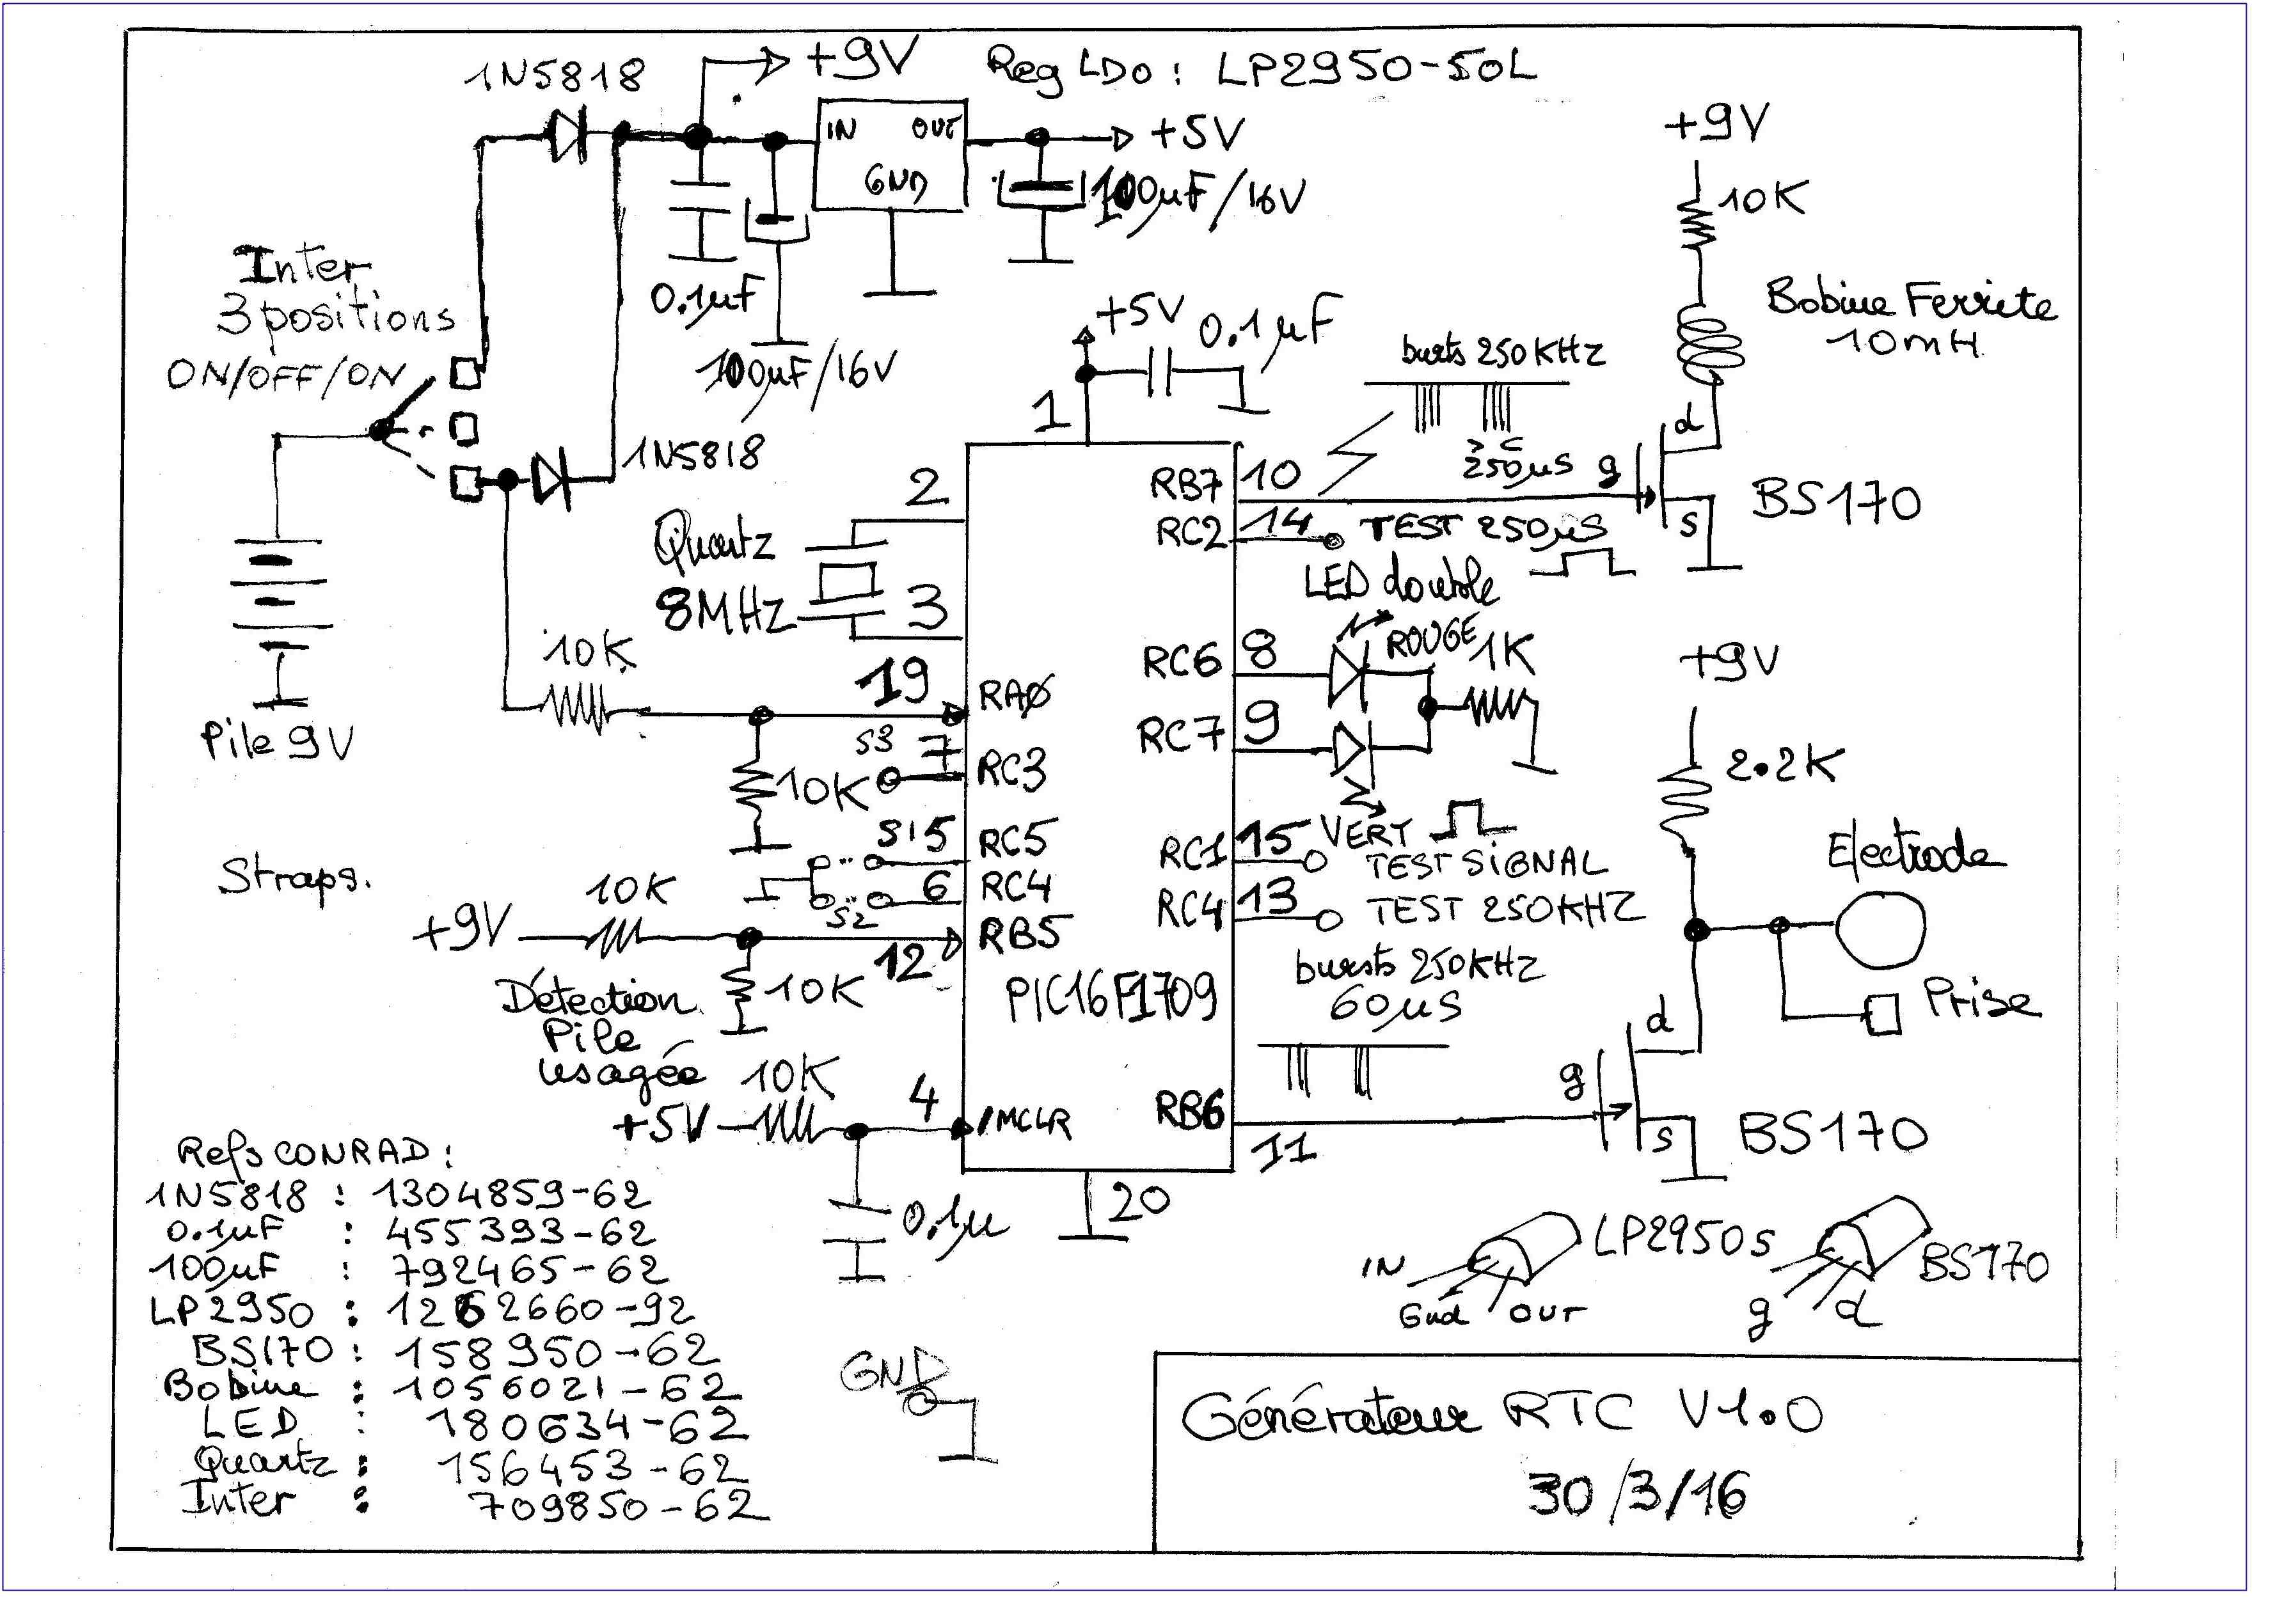 1N5818
+9V
Reg LDO : LP2950-50L
IN
OUT
GND
+5V
100µF/16V
0.1µF
100µF/16V
Inter
3 positions
ON/OFF/ON
1N5818
Pile 9V
+9V
10K
Bobine Ferrite
10mH
d
g
s
BS170
+5V
0.1µF
bursts 250KHZ
250µS
1
2
Quartz
8MHZ
3
10K
19
RAØ
10K
S3
7
RC3
S1
5
RC5
S2
6
RC4
Straps.
+9V
10K
12
RB5
10K
Détection
Pile
usagée
10K
+5V
4
/MCLR
0.1µ
PIC16F1709
20
RB7
10
RC2
14
TEST 250µS
LED double
RC6
8
ROUGE
1K
RC7
9
VERT
RC1
15
TEST SIGNAL
RC4
13
TEST 250KHZ
bursts 250KHZ
60µS
RB6
11
+9V
2.2K
Electrode
Prise
d
g
s
BS170
Refs CONRAD :
1N5818 : 1304859-62
0.1µF : 455393-62
100µF : 792465-62
LP2950 : 1262660-92
BS170 : 158950-62
Bobine : 1056021-62
LED : 180634-62
Quartz : 156453-62
Inter : 709850-62
GND
IN
Gnd
OUT
LP2950
s
g
d
BS170
Générateur RTC V1.0
30/3/16